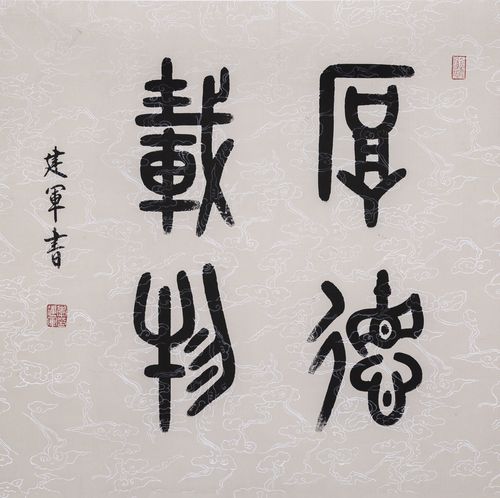 厚德
載物
建軍書